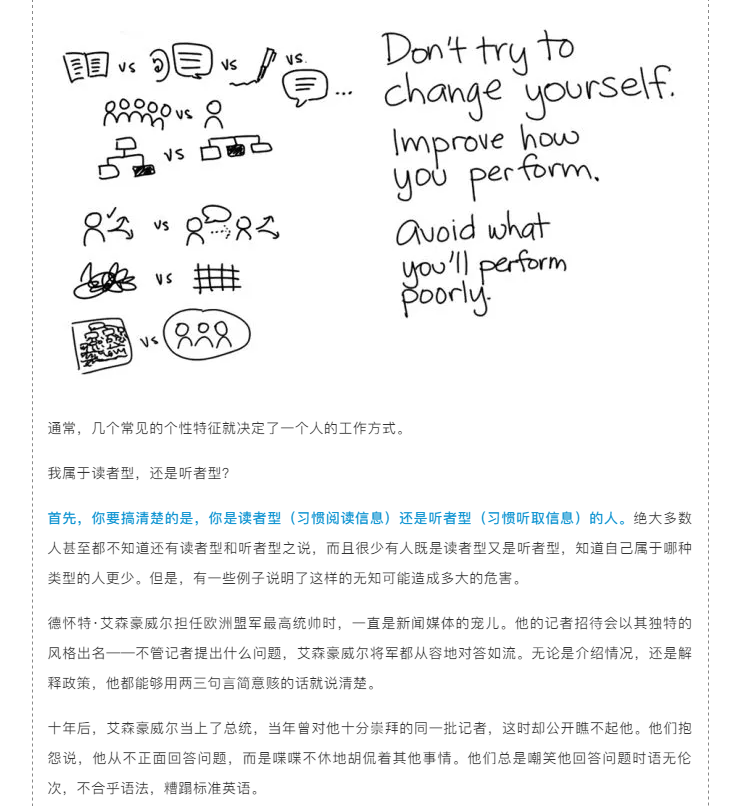 vs vs vs. ...
vs
vs
vs
vs
vs
Don't try to
change yourself.
Improve how
you perform.
Avoid what
you'll perform
poorly.
通常，几个常见的个性特征就决定了一个人的工作方式。
我属于读者型，还是听者型？
首先，你要搞清楚的是，你是读者型（习惯阅读信息）还是听者型（习惯听取信息）的人。绝大多数
人甚至都不知道还有读者型和听者型之说，而且很少有人既是读者型又是听者型，知道自己属于哪种
类型的人更少。但是，有一些例子说明了这样的无知可能造成多大的危害。
德怀特·艾森豪威尔担任欧洲盟军最高统帅时，一直是新闻媒体的宠儿。他的记者招待会以其独特的
风格出名——不管记者提出什么问题，艾森豪威尔将军都从容地对答如流。无论是介绍情况，还是解
释政策，他都能够用两三句言简意赅的话就说清楚。
十年后，艾森豪威尔当上了总统，当年曾对他十分崇拜的同一批记者，这时却公开瞧不起他。他们抱
怨说，他从不正面回答问题，而是喋喋不休地胡侃着其他事情。他们总是嘲笑他回答问题时语无伦
次，不合乎语法，糟蹋标准英语。